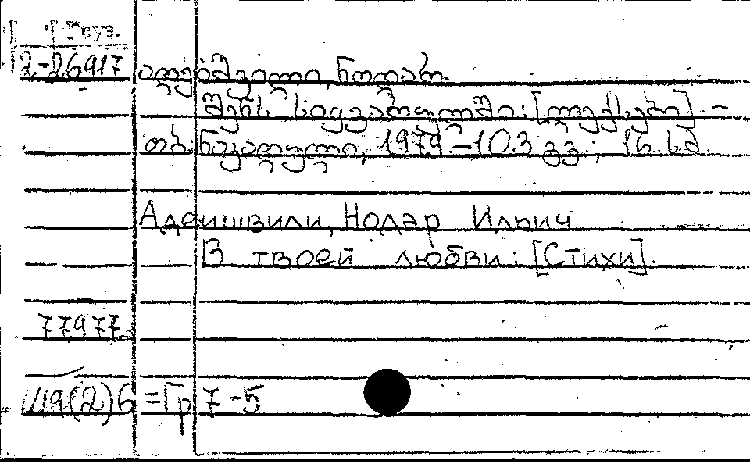 2-26917
ადეიშვილი, ნოდარ.
შენს სიყვარულში: [ლექსები]. -
თბ. ნაკადული, 1979 - 103 გვ; 16 სმ.
Адеишвили, Нодар Ильич
В твоей любви: [Стихи].
77977
Ш9(2)6=Гр7-5